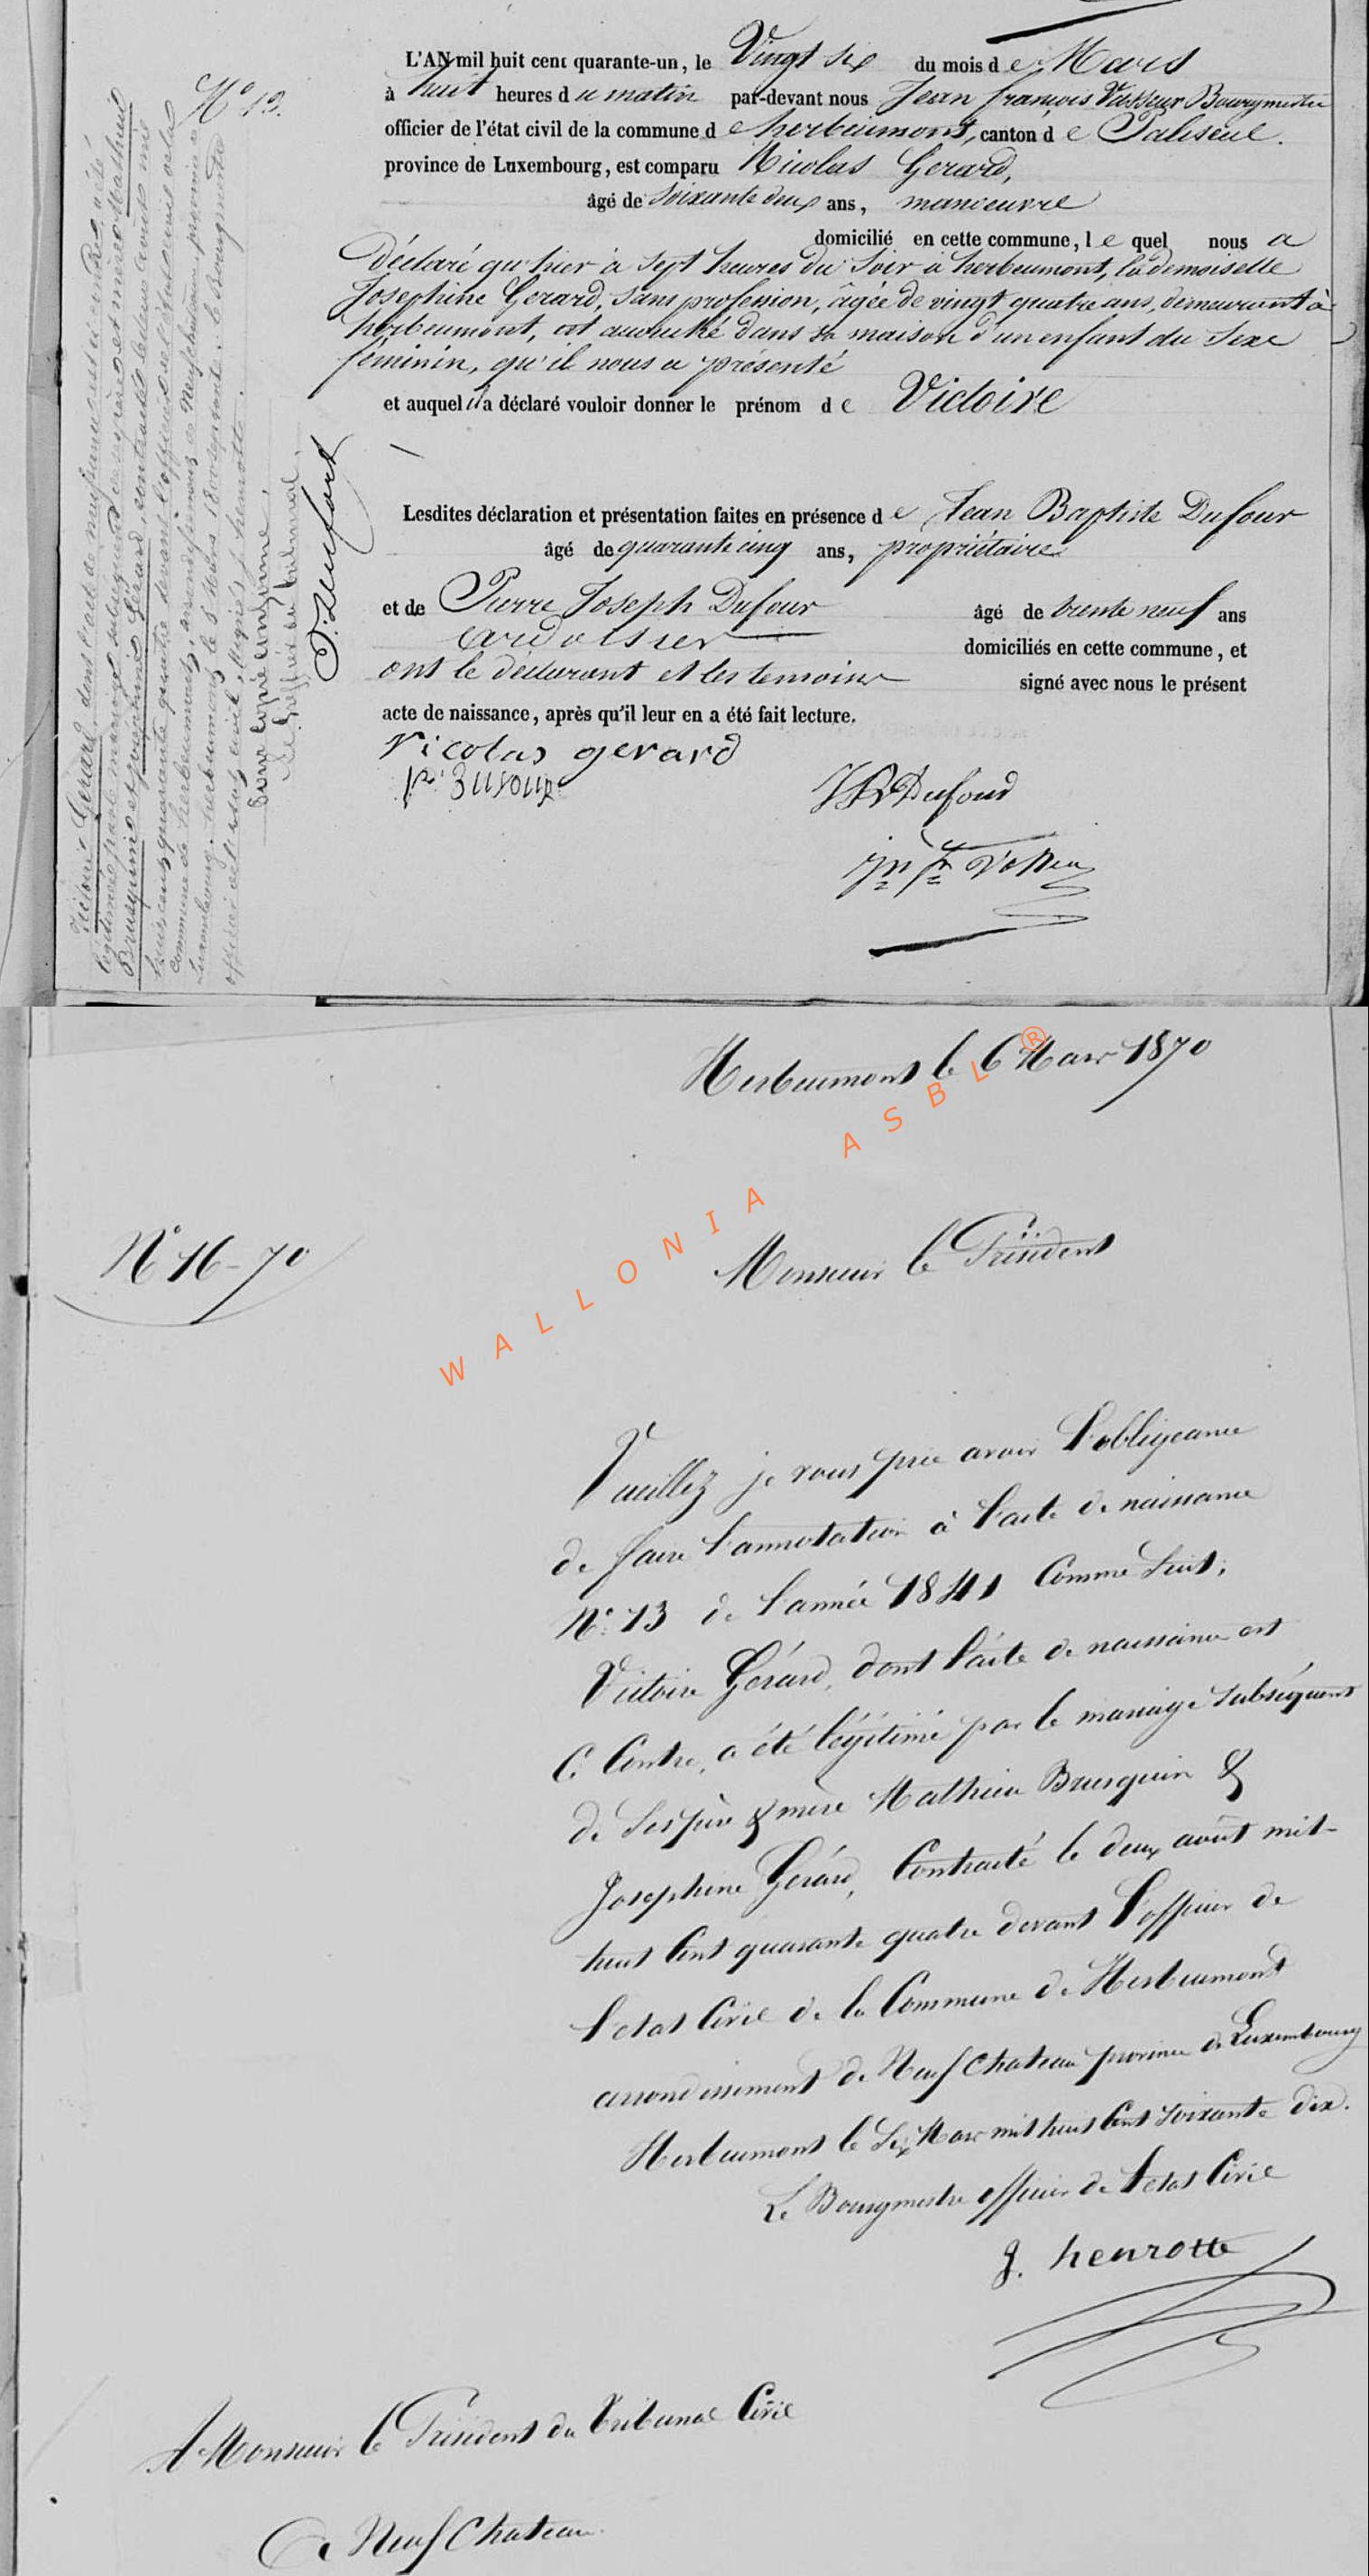 L'AN mil huit cent quarante-un, le Vingt six du mois de Mars
à huit heures du matin par-devant nous Jean françois Vasseur Bourgmestre
officier de l'état civil de la commune de herbeumont, canton de Paliseul.
province de Luxembourg, est comparu Nicolas Gerard,
âgé de Soixante deux ans, manoeuvre
domicilié en cette commune, lequel nous a
Déclaré qu'hier à sept heures du soir à herbeumont, la demoiselle
Josephine Gerard, sans profession, âgée de vingt quatre ans, demeurant à
herbeumont, est accouché dans sa maison d'un enfant du sexe
féminin, qu'il nous a présenté
et auquel il a déclaré vouloir donner le prénom de Victoire
Lesdites déclaration et présentation faites en présence de Jean Baptiste Dufour
âgé de quarante cinq ans, propriétaire
et de Pierre Joseph Dufour âgé de trente neuf ans
ardoisier domiciliés en cette commune, et
ont le déclarant et les temoins signé avec nous le présent
acte de naissance, après qu'il leur en a été fait lecture.
Nicolas gerard
JB Dufour
N° 13.
Victoire Gerard, dont l'acte de naissance est ci contre, a été
légitimée par le mariage subséquent de ses père et mère Mathieu
Brusquin et Joséphine Gérard, contracté le deux août mil
huit cent quarante quatre devant l'officier de l'état civil de la
commune de herbeumont, arrondissement de Neufchateau, province de
Luxembourg. herbeumont le 6 Mars 1800 septante. le Bourgmestre
officier de l'etat civil, signé J. henrotte.
Pour copie conforme,
Le Greffier du tribunal,
Herbeumont le 6 Mars 1870
N° 16-70
Monsieur le Président
Veuillez je vous prie avoir l'obligeance
de faire l'annotation à l'acte de naissance
N° 13 de l'année 1841 Comme Suit;
Victoire Gérard, dont l'acte de naissance est
Ci Contre, a été légitimé par le mariage subséquent
de Ses père & mère Mathieu Brusquin &
Josephine Gérard, Contracté le deux août mil-
huit Cent quarante quatre devant l'officier de
l'etat Civil de la Commune de Herbeumont
arrondissement de Neufchateau province de Luxembourg
Herbeumont le Six Mars mil huit Cent Soixante dix.
Le Bourgmestre officier de l'etat Civil
J. henrotte
A Monsieur le Président du tribunal Civil
à Neufchateau
WALLONIA ASBL ®